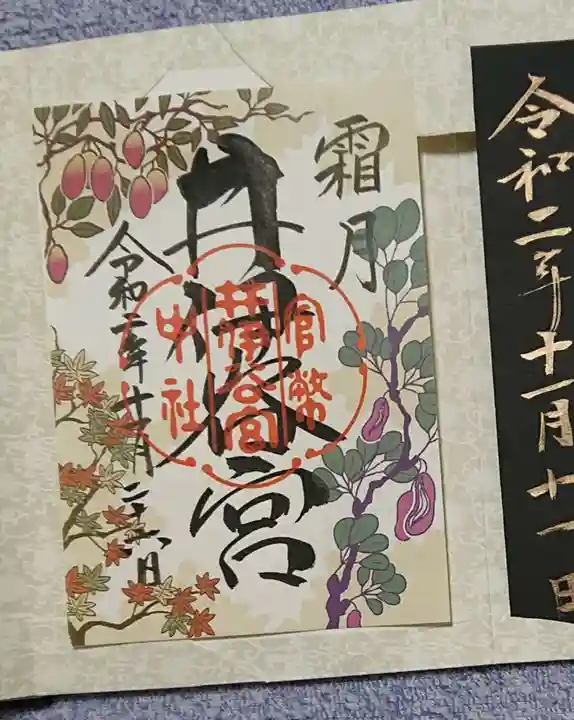 令和二年十一月十一日
霜月
井伊谷宮
令和二年十一月二十六日
官幣
中社